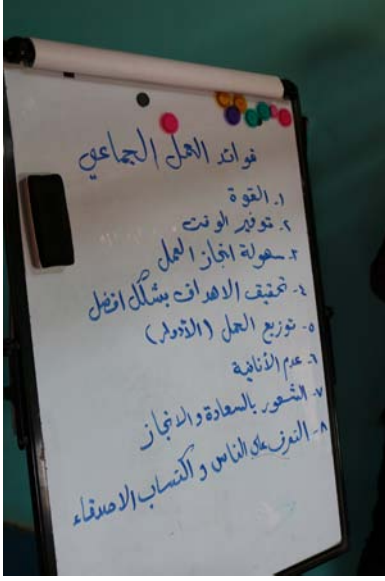 فوائد العمل الجماعي
١. القوة
٢. توفير الوقت
٣. سهولة انجاز العمل
٤- تحقيق الاهداف بشكل افضل
٥- توزيع العمل (الأدوار)
٦- عدم الأنانية
٧- الشعور بالسعادة والانجاز
٨- التعرف على الناس و اكتساب الاصدقاء